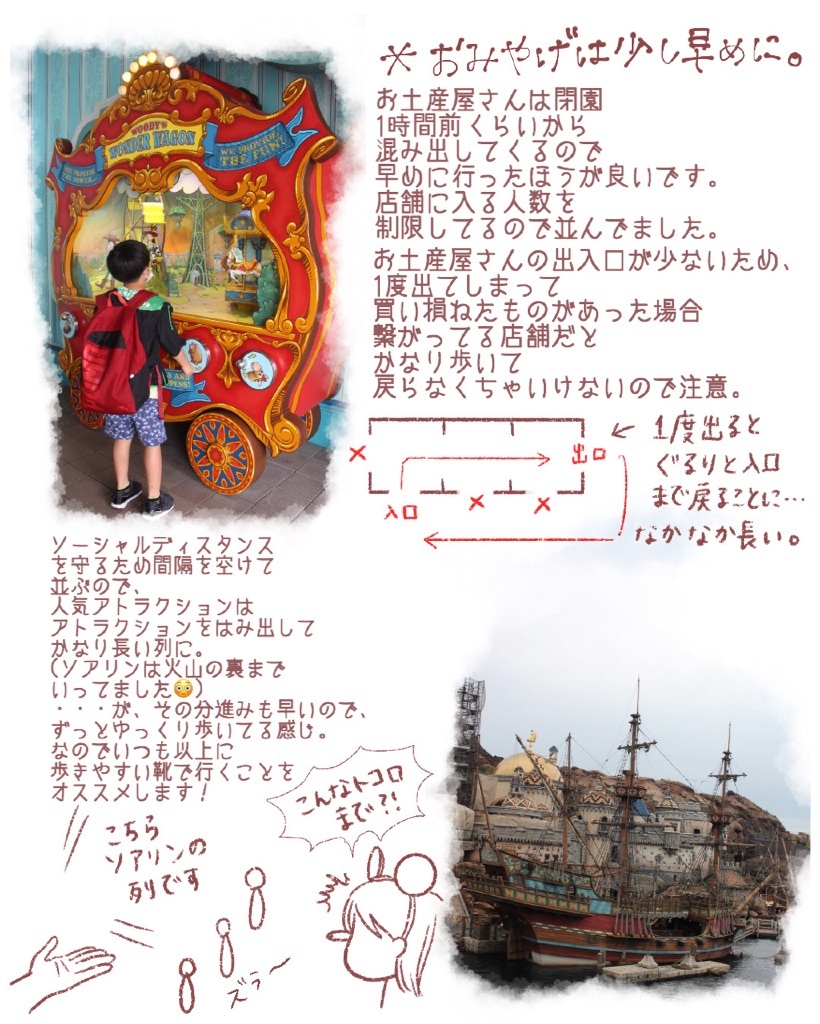 ※おみやげは少し早めに。
お土産屋さんは閉園
1時間前くらいから
混み出してくるので
早めに行ったほうが良いです。
店舗に入る人数を
制限してるので並んでました。
お土産屋さんの出入口が少ないため、
1度出てしまって
買い損ねたものがあった場合
繋がってる店舗だと
かなり歩いて
戻らなくちゃいけないので注意。
WOODY'S
WONDER WAGON
WE PROVIDE
THE FUN!
出口
入口
1度出ると
ぐるりと入口
まで戻ることに…
なかなか長い。
ソーシャルディスタンス
を守るため間隔を空けて
並ぶので、
人気アトラクションは
アトラクションをはみ出して
かなり長い列に。
(ソアリンは火山の裏まで
いってました😳)
・・・が、その分進みも早いので、
ずっとゆっくり歩いてる感じ。
なのでいつも以上に
歩きやすい靴で行くことを
オススメします!
こんなトコロ
まで?!
こちら
ソアリンの
列です
ズラ〜